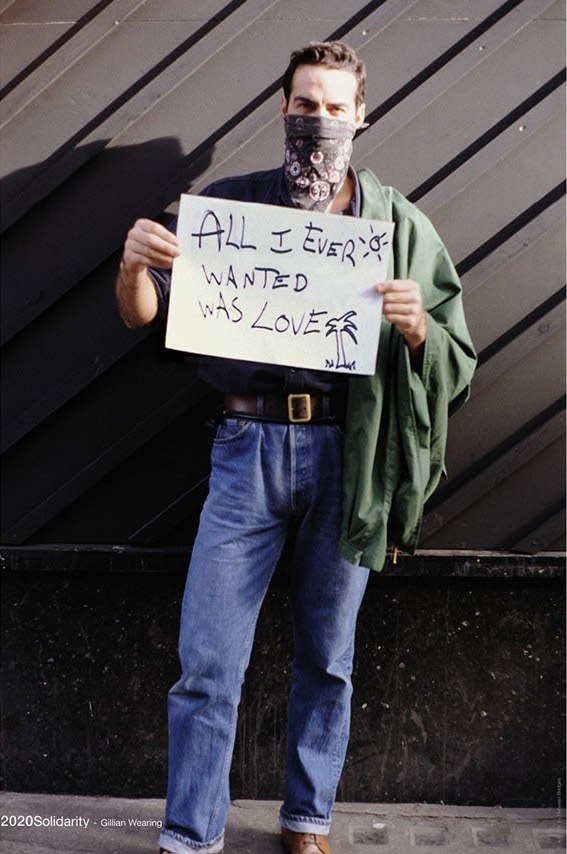 ALL I EVER
WANTED
WAS LOVE
2020Solidarity - Gillian Wearing